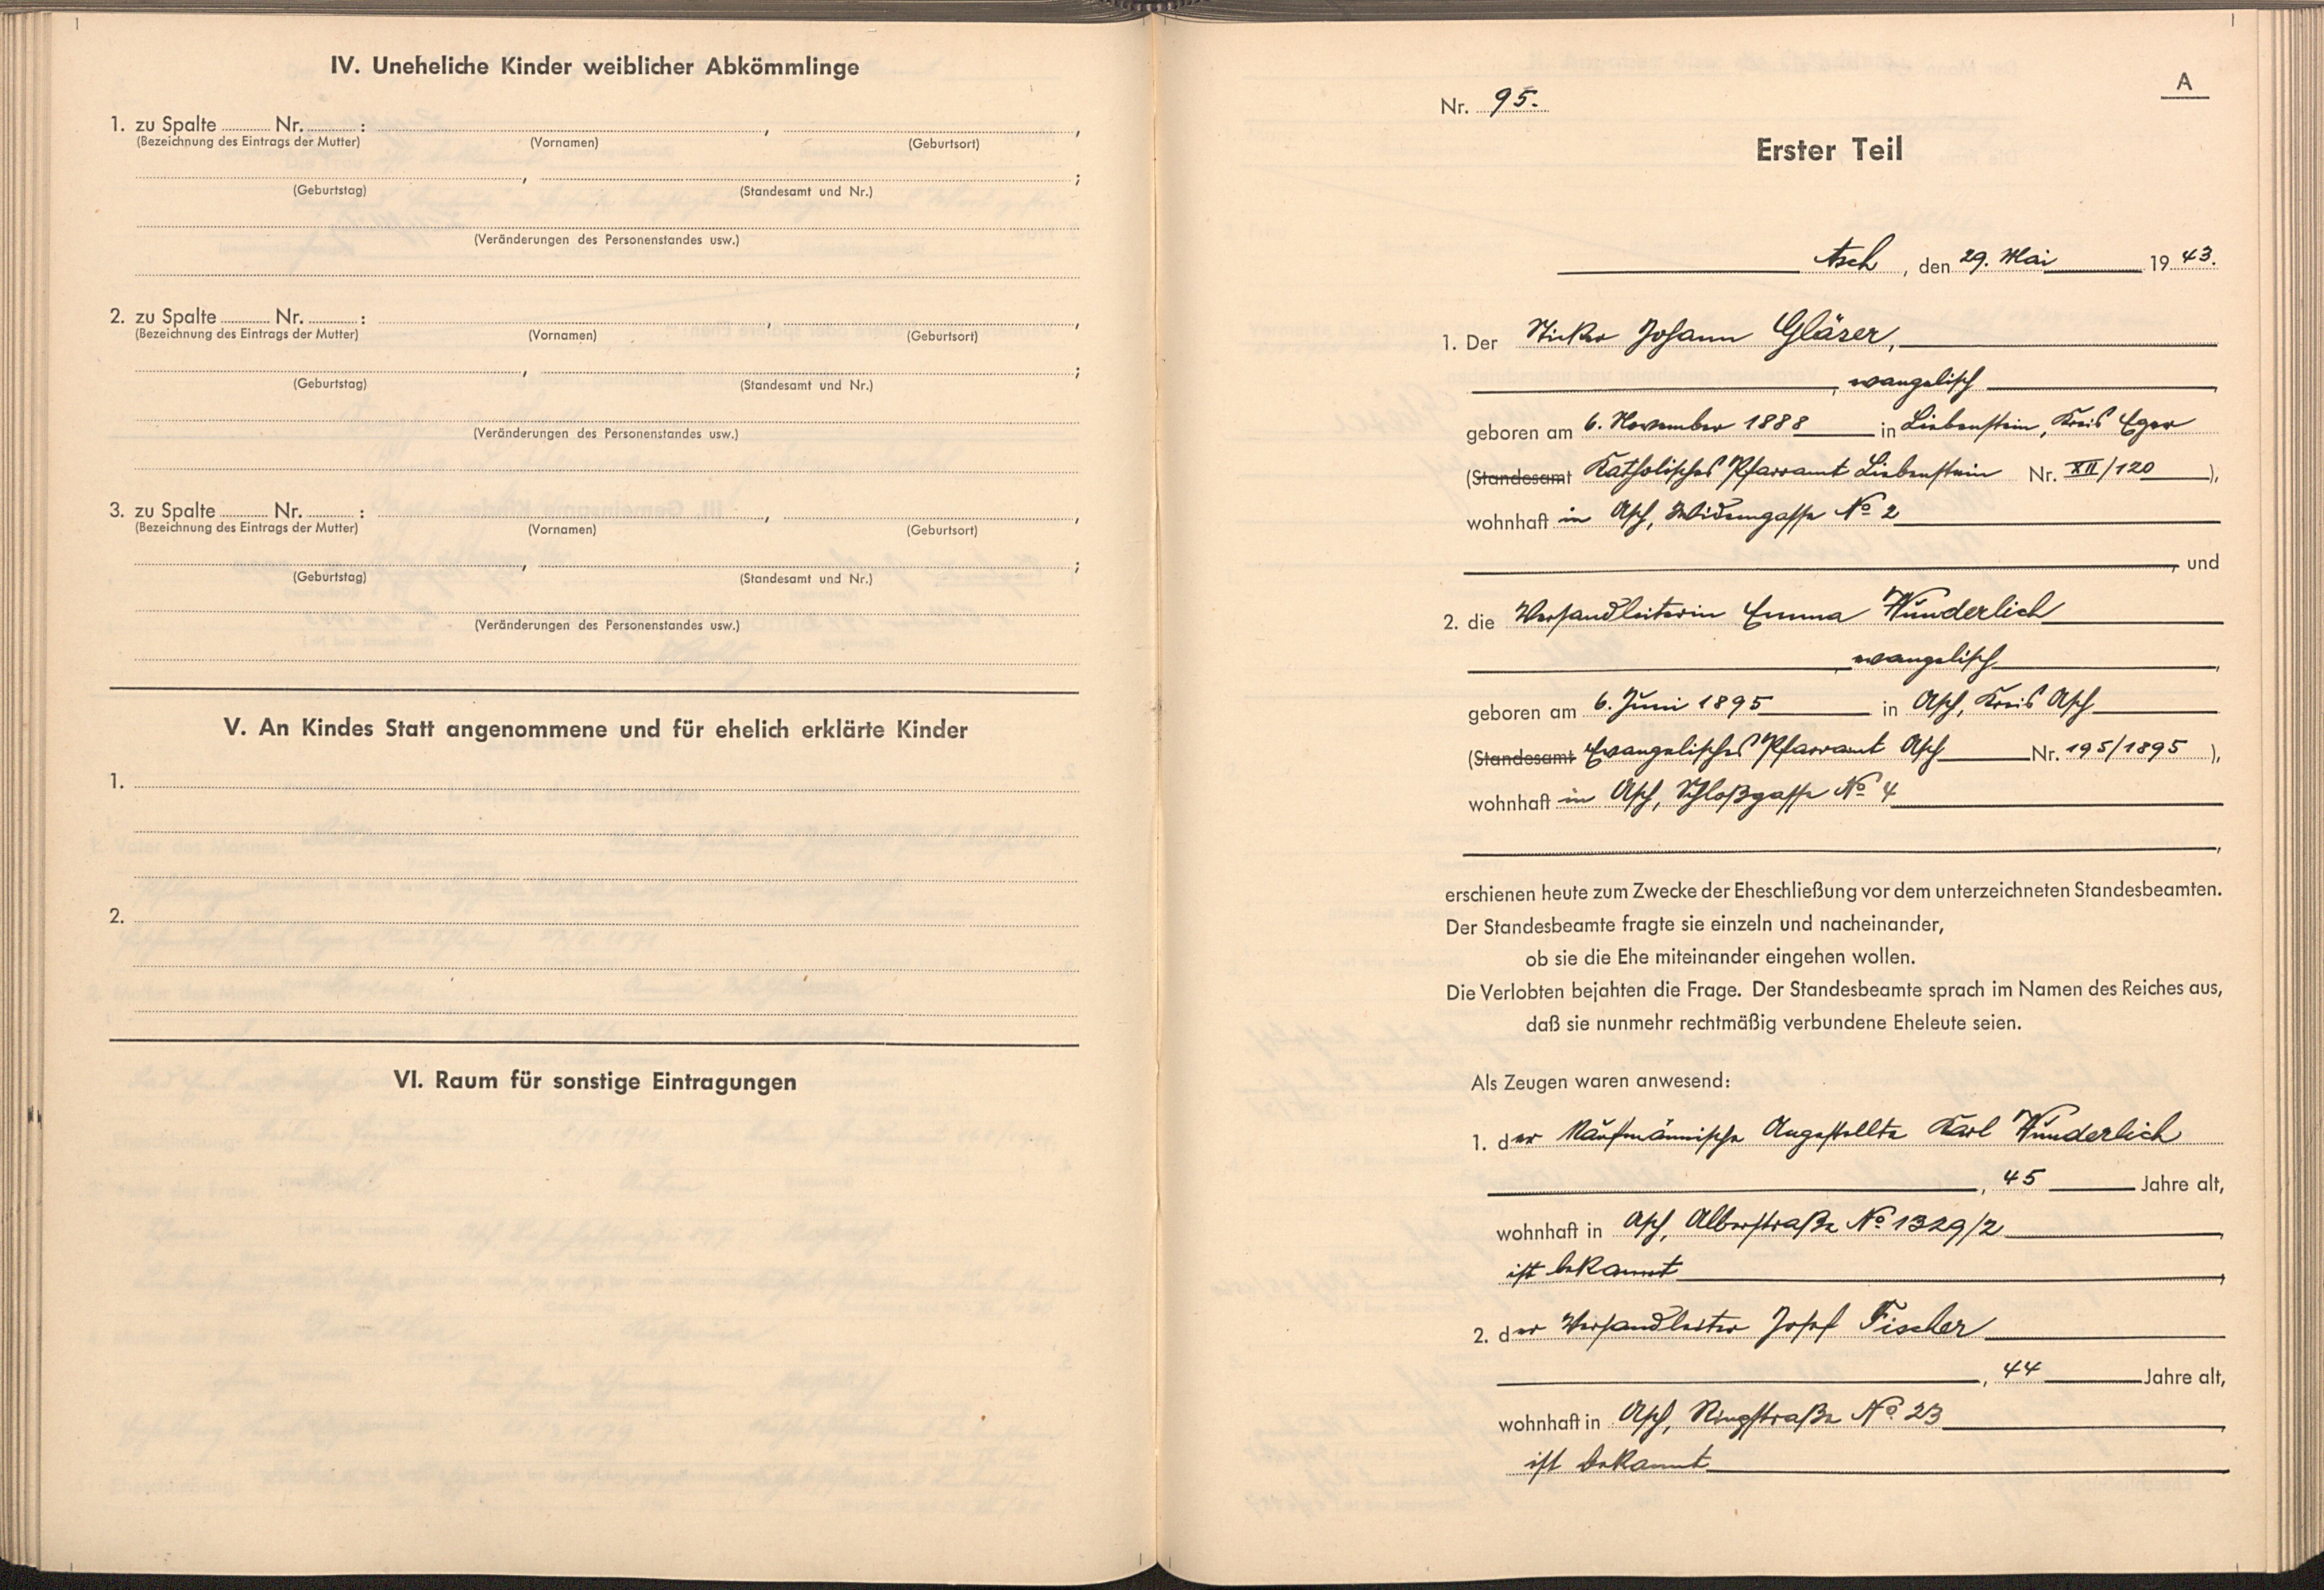 IV. Uneheliche Kinder weiblicher Abkömmlinge
1. zu Spalte ........ Nr. ........ : , ,
(Bezeichnung des Eintrags der Mutter) (Vornamen) (Geburtsort)
, ;
(Geburtstag) (Standesamt und Nr.)
(Veränderungen des Personenstandes usw.)
2. zu Spalte ........ Nr. ........ : , ,
(Bezeichnung des Eintrags der Mutter) (Vornamen) (Geburtsort)
, ;
(Geburtstag) (Standesamt und Nr.)
(Veränderungen des Personenstandes usw.)
3. zu Spalte ........ Nr. ........ : , ,
(Bezeichnung des Eintrags der Mutter) (Vornamen) (Geburtsort)
, ;
(Geburtstag) (Standesamt und Nr.)
(Veränderungen des Personenstandes usw.)
V. An Kindes Statt angenommene und für ehelich erklärte Kinder
1.
2.
VI. Raum für sonstige Eintragungen
A
Nr. 95.
Erster Teil
Asch, den 29. Mai 1943.
1. Der Sticker Johann Gläser,
, evangelisch,
geboren am 6. November 1888 in Liebenstein, Kreis Eger
(Standesamt Katholisches Pfarramt Liebenstein Nr. XII/120),
wohnhaft in Asch, Widemgasse No 2
, und
2. die Versandleiterin Emma Wunderlich
, evangelisch,
geboren am 6. Juni 1895 in Asch, Kreis Asch
(Standesamt Evangelisches Pfarramt Asch Nr. 195/1895),
wohnhaft in Asch, Schloßgasse No 4
,
erschienen heute zum Zwecke der Eheschließung vor dem unterzeichneten Standesbeamten.
Der Standesbeamte fragte sie einzeln und nacheinander,
ob sie die Ehe miteinander eingehen wollen.
Die Verlobten bejahten die Frage. Der Standesbeamte sprach im Namen des Reiches aus,
daß sie nunmehr rechtmäßig verbundene Eheleute seien.
Als Zeugen waren anwesend:
1. der Kaufmännische Angestellte Karl Wunderlich
, 45 Jahre alt,
wohnhaft in Asch, Alberstraße No 1329/2,
ist bekannt,
2. der Versandleiter Josef Fischer
, 44 Jahre alt,
wohnhaft in Asch, Ringstraße No 23,
ist bekannt